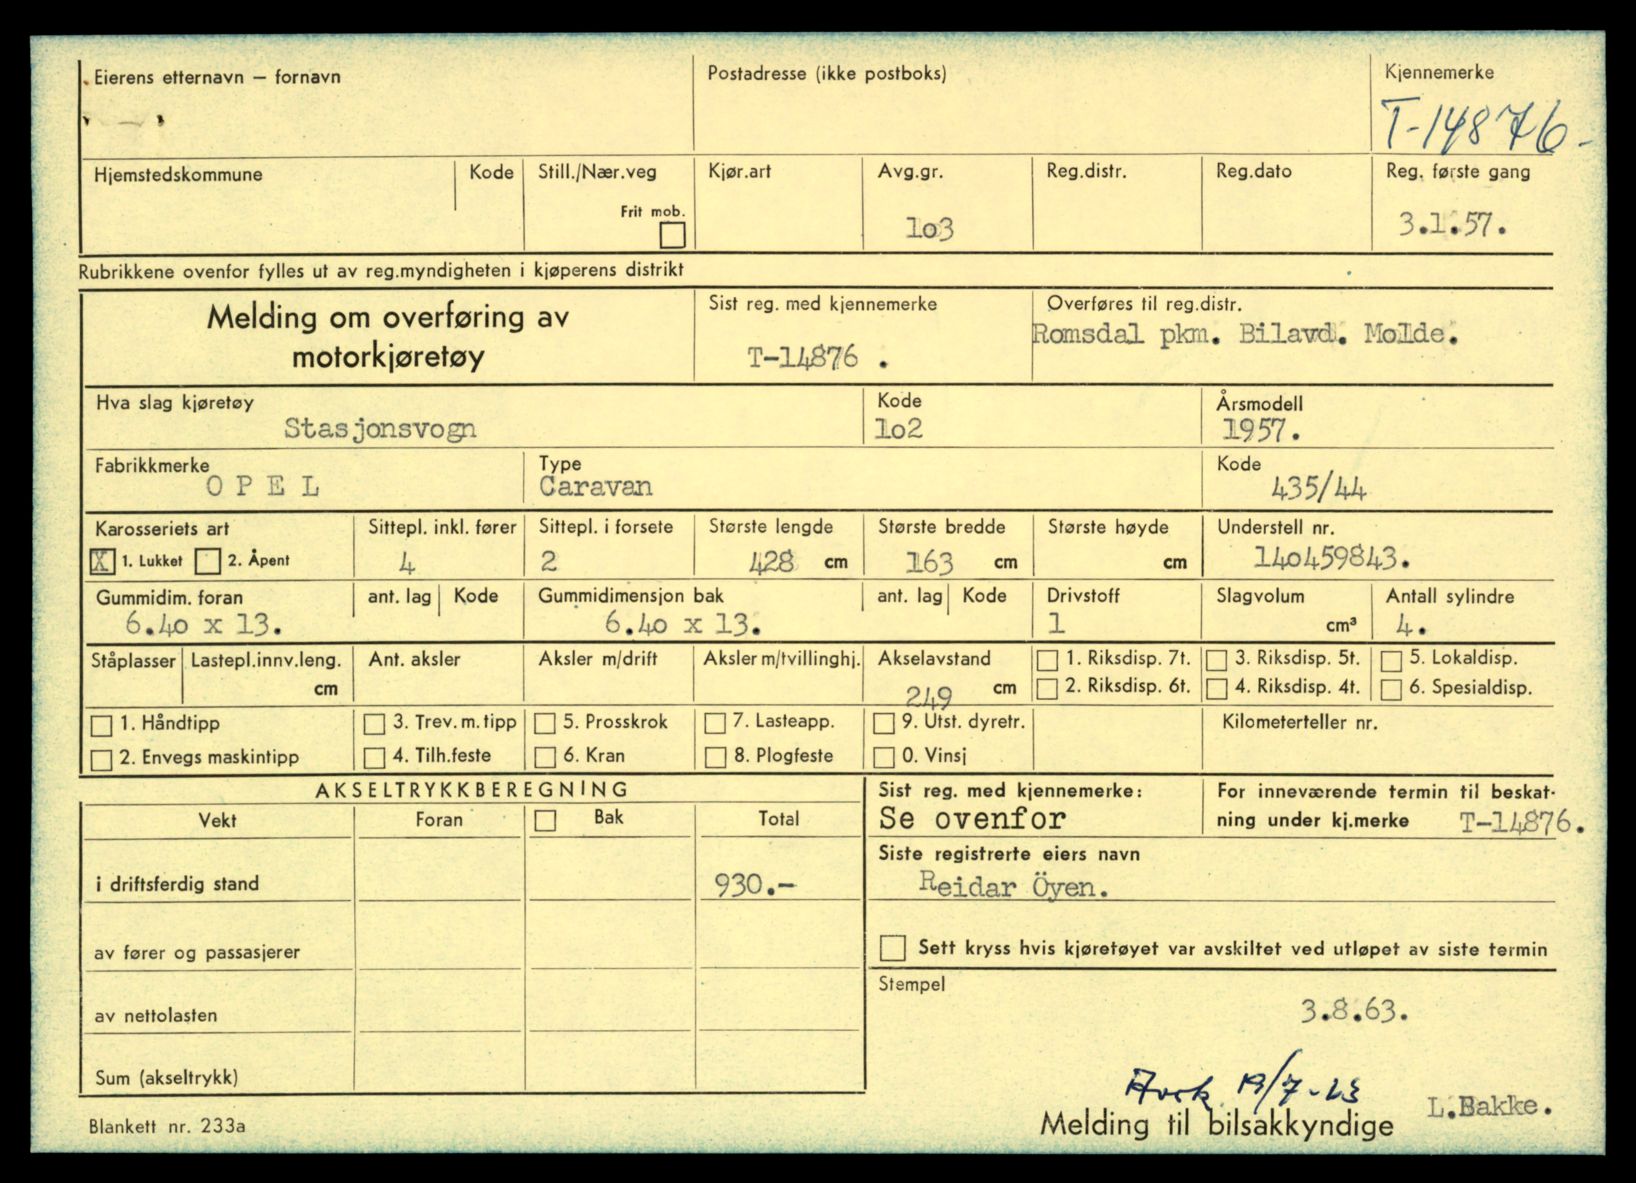 Eierens etternavn – fornavn
Postadresse (ikke postboks)
Kjennemerke
T-14876-
Hjemstedskommune
Kode
Still./Nær.veg
Frit mob.
Kjør.art
Avg.gr.
1o3
Reg.distr.
Reg.dato
Reg. første gang
3.1.57.
Rubrikkene ovenfor fylles ut av reg.myndigheten i kjøperens distrikt
Melding om overføring av
motorkjøretøy
Sist reg. med kjennemerke
T-14876 .
Overføres til reg.distr.
Romsdal pkm. Bilavd. Molde.
Hva slag kjøretøy
Stasjonsvogn
Kode
1o2
Årsmodell
1957.
Fabrikkmerke
O P E L
Type
Caravan
Kode
435/44
Karosseriets art
X 1. Lukket 2. Åpent
Sittepl. inkl. fører
4
Sittepl. i forsete
2
Største lengde
428 cm
Største bredde
163 cm
Største høyde
cm
Understell nr.
14o459843.
Gummidim. foran
6.4o x 13.
ant. lag
Kode
Gummidimensjon bak
6.4o x 13.
ant. lag
Kode
Drivstoff
1
Slagvolum
cm³
Antall sylindre
4.
Ståplasser
Lastepl.innv.leng.
cm
Ant. aksler
Aksler m/drift
Aksler m/tvillinghj.
Akselavstand
249 cm
1. Riksdisp. 7t. 3. Riksdisp. 5t. 5. Lokaldisp.
2. Riksdisp. 6t. 4. Riksdisp. 4t. 6. Spesialdisp.
1. Håndtipp 3. Trev. m. tipp 5. Prosskrok 7. Lasteapp. 9. Utst. dyretr.
Kilometerteller nr.
2. Envegs maskintipp 4. Tilh.feste 6. Kran 8. Plogfeste 0. Vinsj
AKSELTRYKKBEREGNING
Vekt Foran Bak Total
i driftsferdig stand 930.-
av fører og passasjerer
av nettolasten
Sum (akseltrykk)
Sist reg. med kjennemerke:
Se ovenfor
For inneværende termin til beskat-
ning under kj.merke T-14876.
Siste registrerte eiers navn
Reidar Öyen.
Sett kryss hvis kjøretøyet var avskiltet ved utløpet av siste termin
Stempel
3.8.63.
L.Bakke.
Melding til bilsakkyndige
Blankett nr. 233a